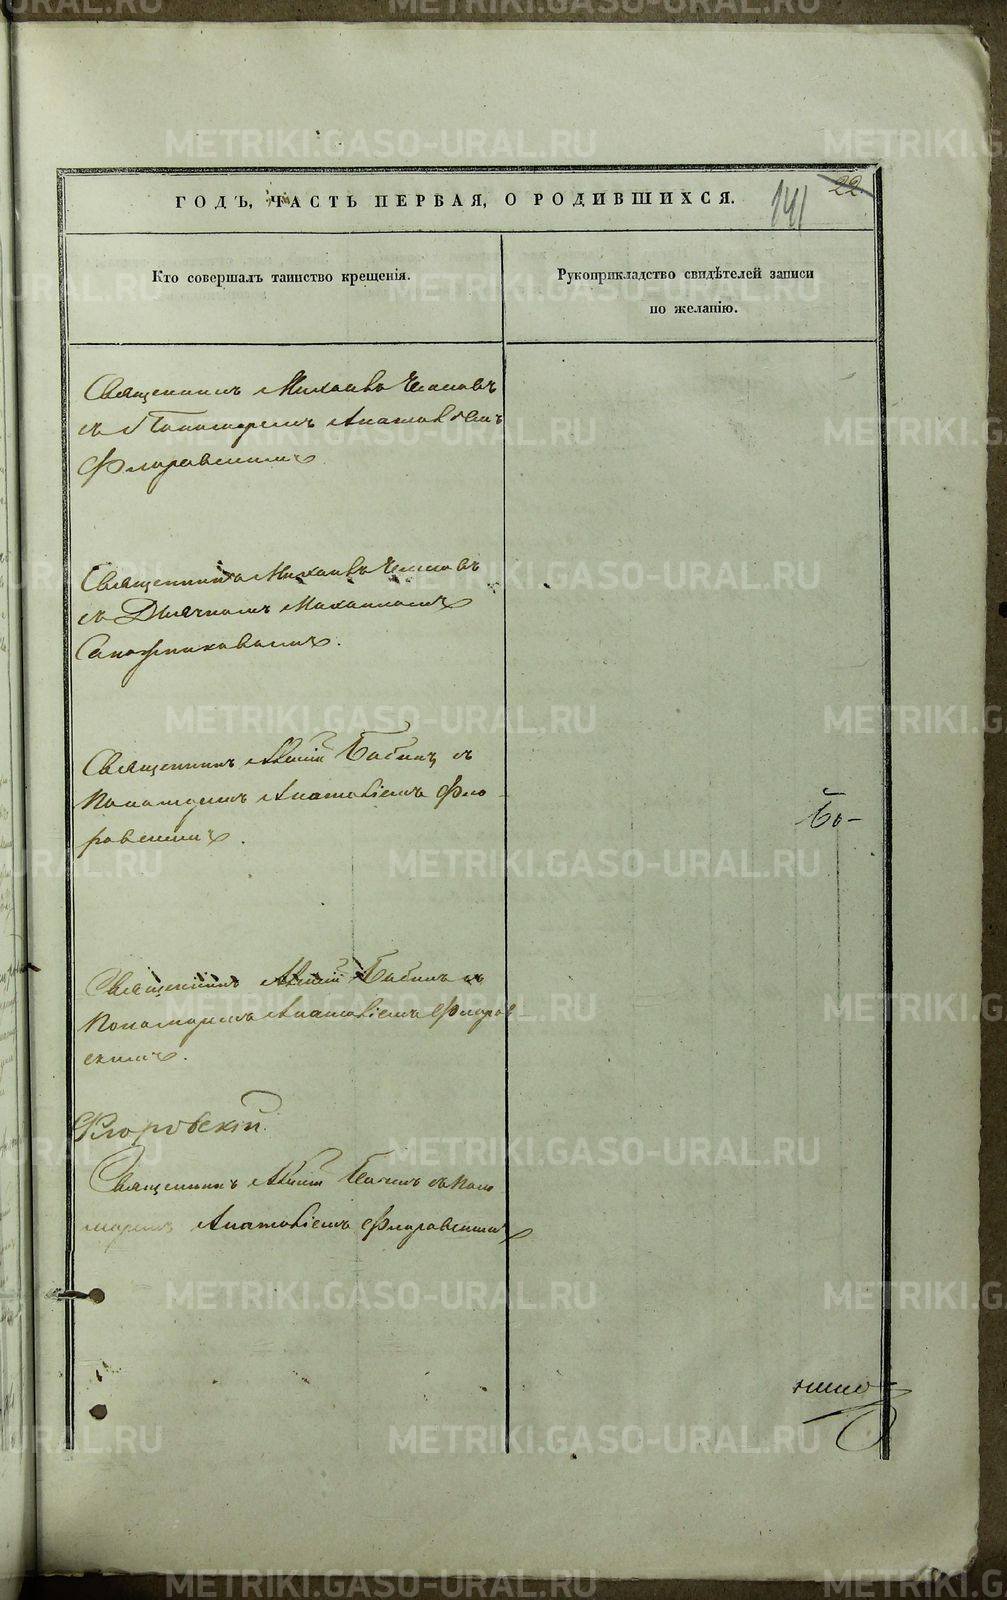 ГОДЪ, ЧАСТЬ ПЕРВАЯ, О РОДИВШИХСЯ.
141 22
Кто совершалъ таинство крещенія.
Рукоприкладство свидѣтелей записи
по желанію.
Священникъ Михаилъ
съ Пономаремъ Анатоліемъ
Флоровскимъ
Священникъ Михаилъ
съ Дьячкомъ Михаиломъ
Сапожниковымъ.
Священникъ Бабинъ съ
Пономаремъ Анатоліемъ Фло-
ровскимъ.
Священникъ Бабинъ съ
Пономаремъ Анатоліемъ Флоров
скимъ.
Флоровскій.
Священникъ Бабинъ съ Поно
маремъ Анатоліемъ Флоровскимъ
METRIKI.GASO-URAL.RU